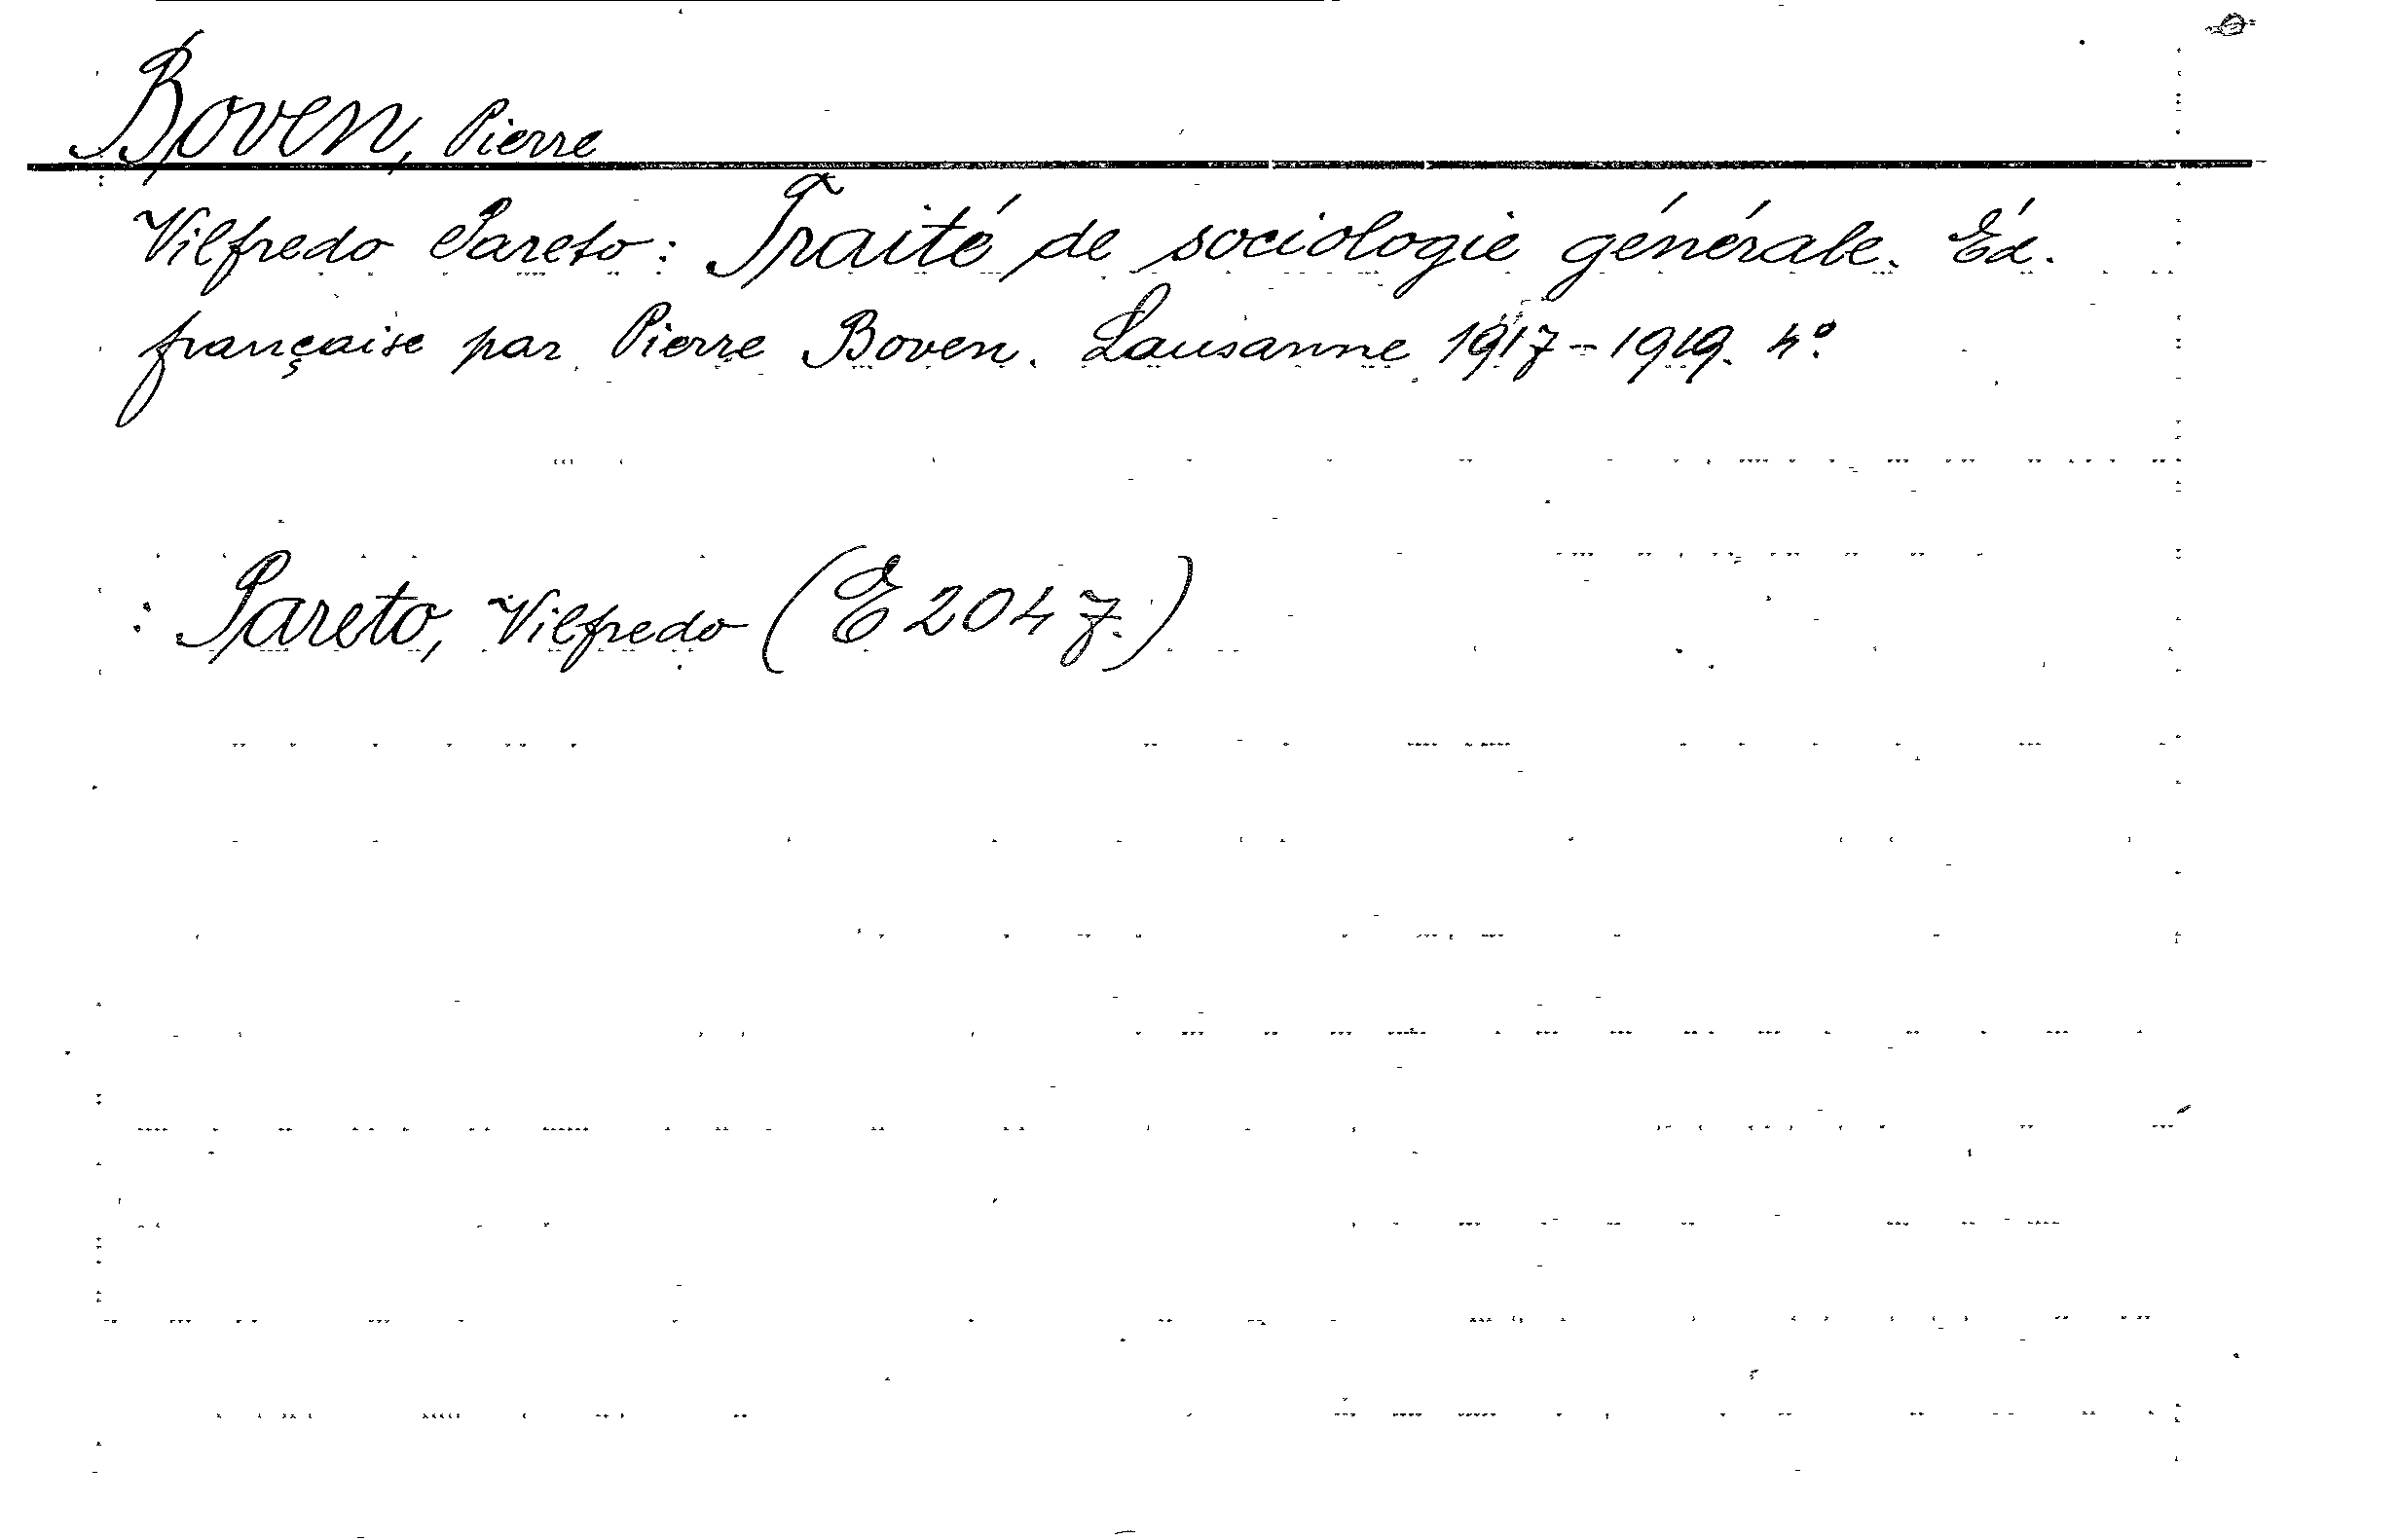 Boven, Pierre
Vilfredo Pareto: Traité de sociologie générale. Éd.
française par Pierre Boven. Lausanne 1917-1919. 4o.
: Pareto, Vilfredo (E 2047.)